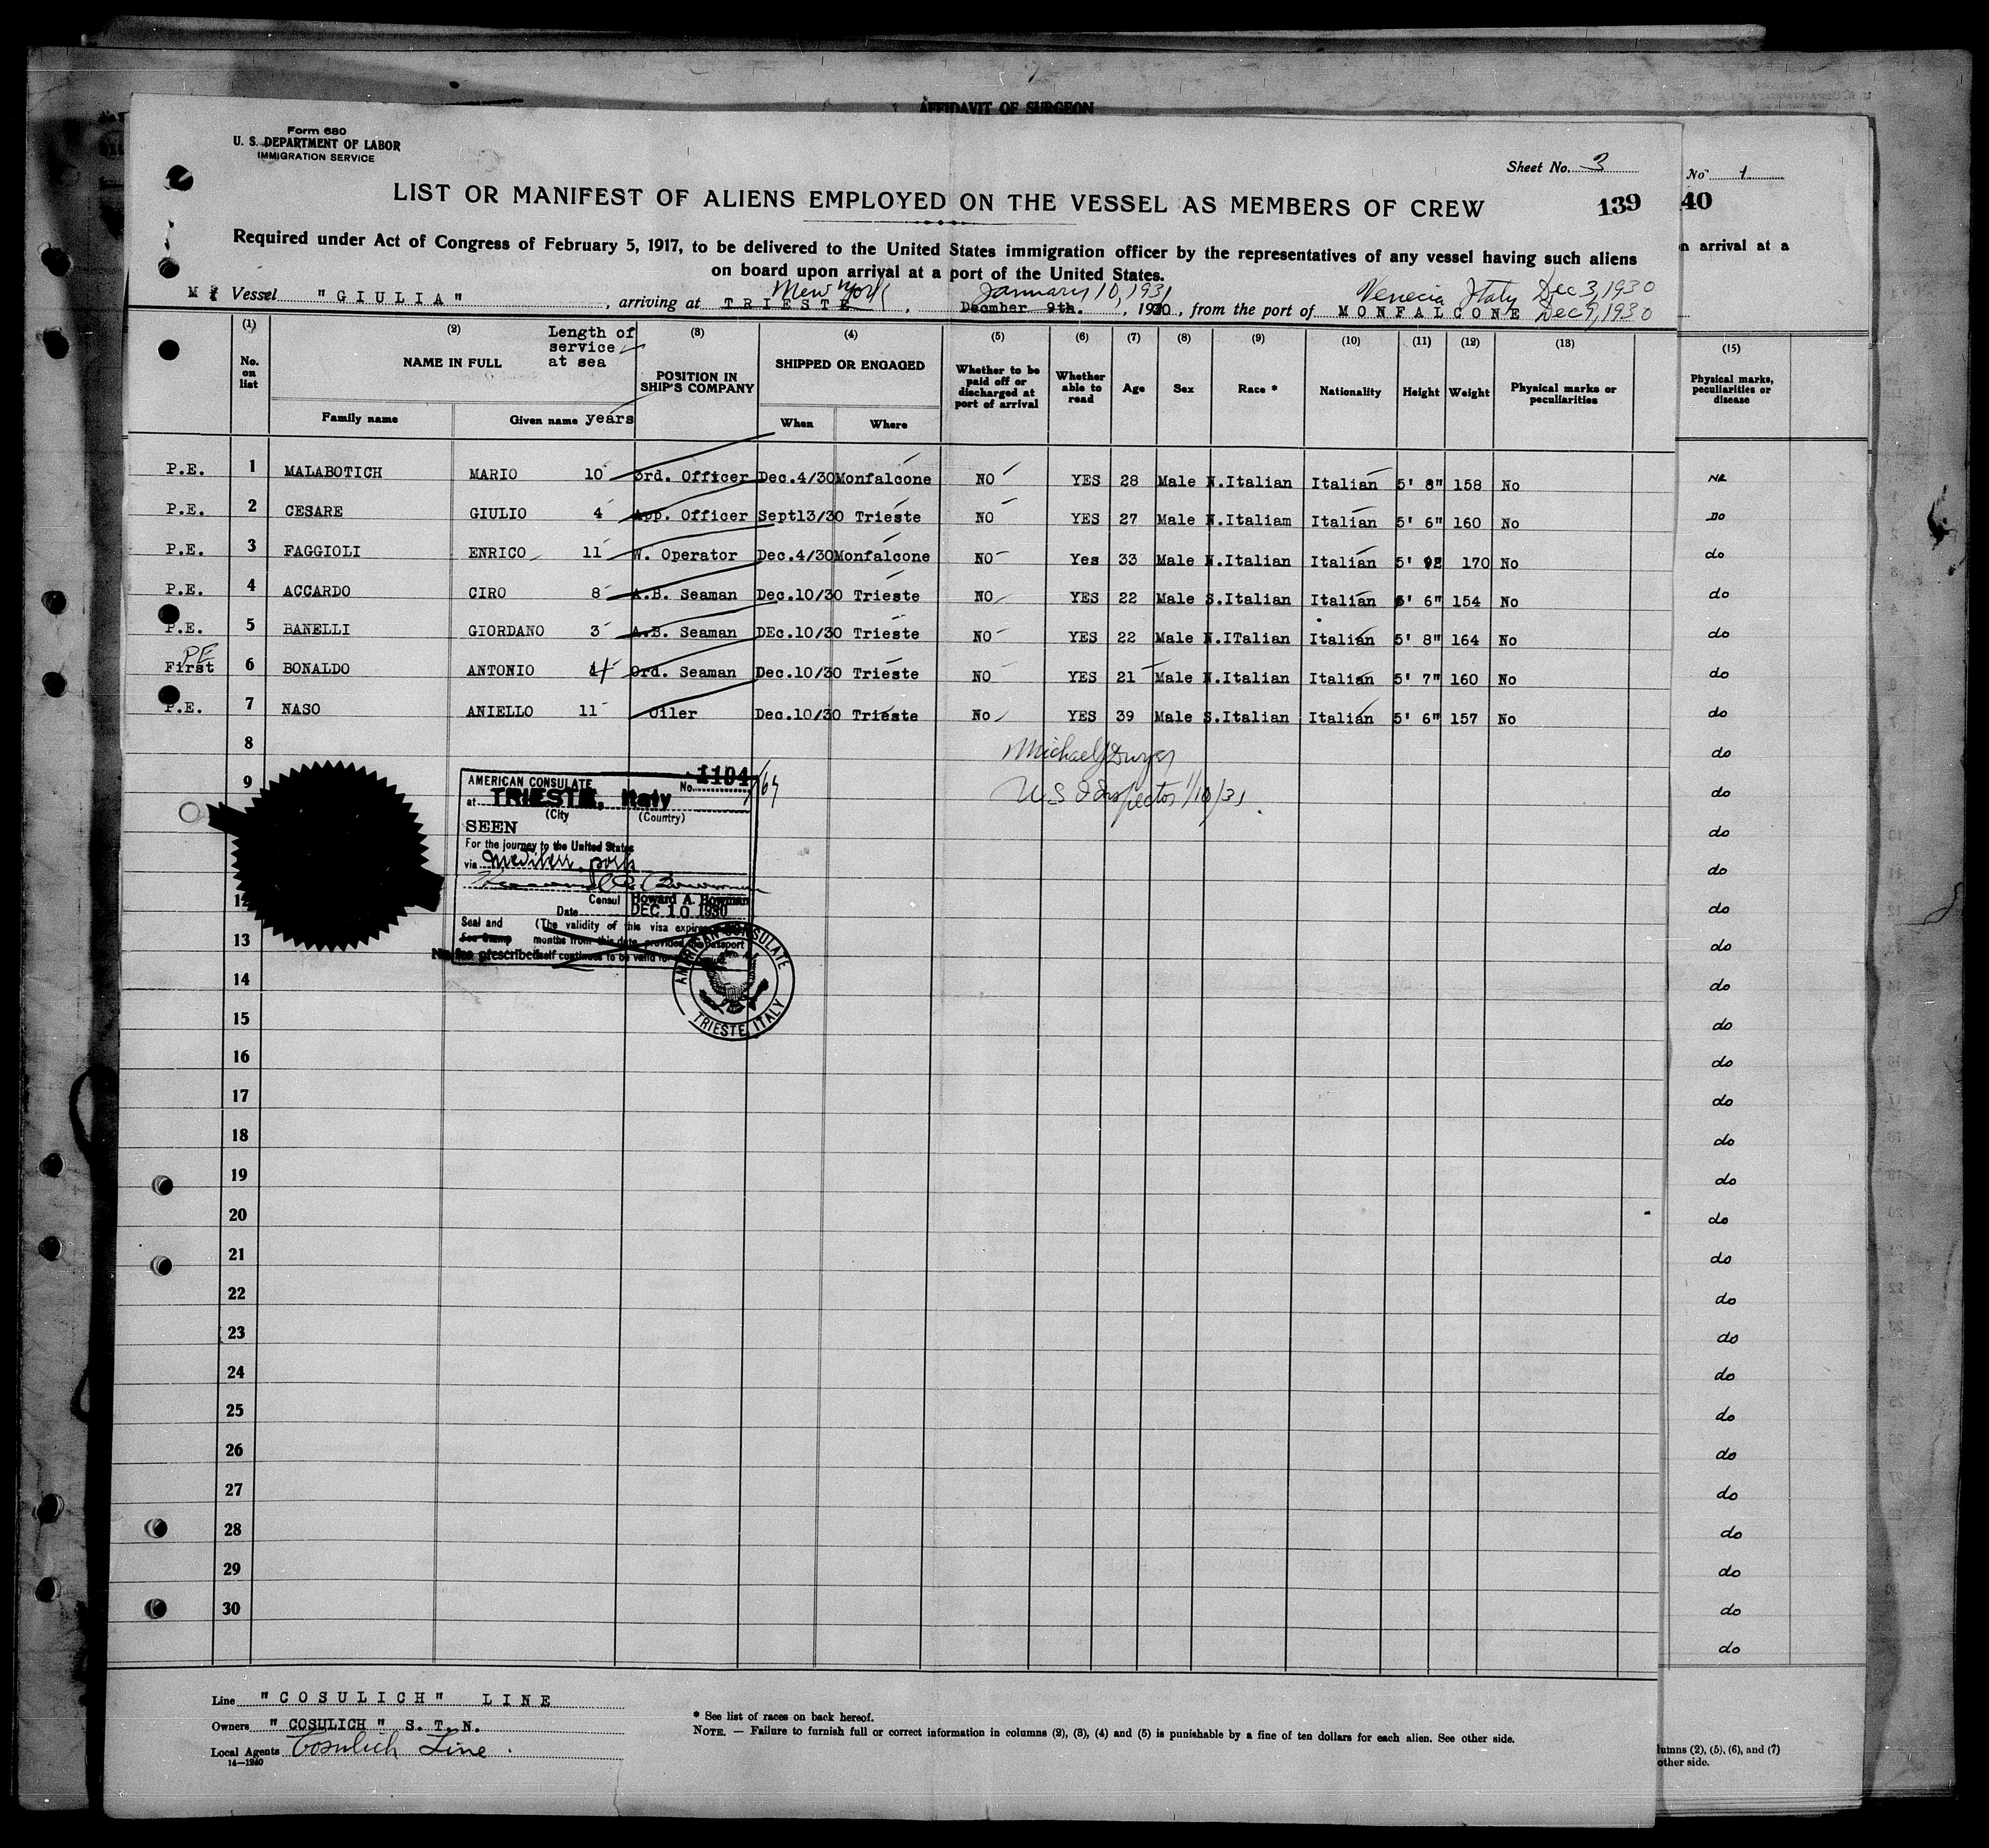 AFFIDAVIT OF SURGEON
Form 680
U. S. DEPARTMENT OF LABOR
IMMIGRATION SERVICE
Sheet No. 3
No 1
LIST OR MANIFEST OF ALIENS EMPLOYED ON THE VESSEL AS MEMBERS OF CREW
139
40
Required under Act of Congress of February 5, 1917, to be delivered to the United States immigration officer by the representatives of any vessel having such aliens
n arrival at a
on board upon arrival at a port of the United States.
New York January 10, 1931 Venecia Italy Dec 3, 1930
Vessel "GIULIA", arriving at TRIESTE, Decmber 9th., 1930, from the port of MONFALCONE Dec 9, 1930
(1) (2) (3) (4) (5) (6) (7) (8) (9) (10) (11) (12) (13) (15)
No. on list
NAME IN FULL
Length of service at sea
years
Family name
Given name
POSITION IN SHIP'S COMPANY
SHIPPED OR ENGAGED
When
Where
Whether to be paid off or discharged at port of arrival
Whether able to read
Age
Sex
Race *
Nationality
Height
Weight
Physical marks or peculiarities
Physical marks, peculiarities or disease
P.E. 1 MALABOTICH MARIO 10 3rd. Officer Dec.4/30 Monfalcone NO YES 28 Male N.Italian Italian 5' 8" 158 No
P.E. 2 CESARE GIULIO 4 App. Officer Sept13/30 Trieste NO YES 27 Male N.Italiam Italian 5' 6" 160 No do
P.E. 3 FAGGIOLI ENRICO 11 W. Operator Dec.4/30 Monfalcone NO Yes 33 Male N.Italian Italian 5' 170 No do
P.E. 4 ACCARDO CIRO 8 A.B. Seaman Dec.10/30 Trieste NO YES 22 Male S.Italian Italian 5' 6" 154 No do
P.E. 5 BANELLI GIORDANO 3 A.B. Seaman DEc.10/30 Trieste NO YES 22 Male N.ITalian Italian 5' 8" 164 No do
PE
First 6 BONALDO ANTONIO 4 Ord. Seaman Dec.10/30 Trieste NO YES 21 Male N.Italian Italian 5' 7" 160 No do
P.E. 7 NASO ANIELLO 11 Oiler Dec.10/30 Trieste No YES 39 Male S.Italian Italian 5' 6" 157 No do
8 Michael J Dwyer do
9 U.S Inspector 1/10/31. do
do
do
12 do
13 do
14 do
15 do
16 do
17 do
18 do
19 do
20 do
21 do
22 do
23 do
24 do
25 do
26 do
27 do
28 do
29 do
30 do
do
AMERICAN CONSULATE No. 1104
at TRIESTE, Italy
(City (Country)
SEEN
For the journey to the United States
via Mediterr. ports
Consul Howard A. Bowman
Date DEC 10 1930
Seal and (The validity of this visa expires
Fee Stamp months from this date, provided the passport
No fee prescribed itself continues to be valid for
AMERICAN CONSULATE
TRIESTE, ITALY
Line "COSULICH" LINE
Owners "COSULICH" S. T. N.
Local Agents Cosulich Line.
14—1240
* See list of races on back hereof.
NOTE. — Failure to furnish full or correct information in columns (2), (3), (4) and (5) is punishable by a fine of ten dollars for each alien. See other side.
lumns (2), (5), (6), and (7)
other side.